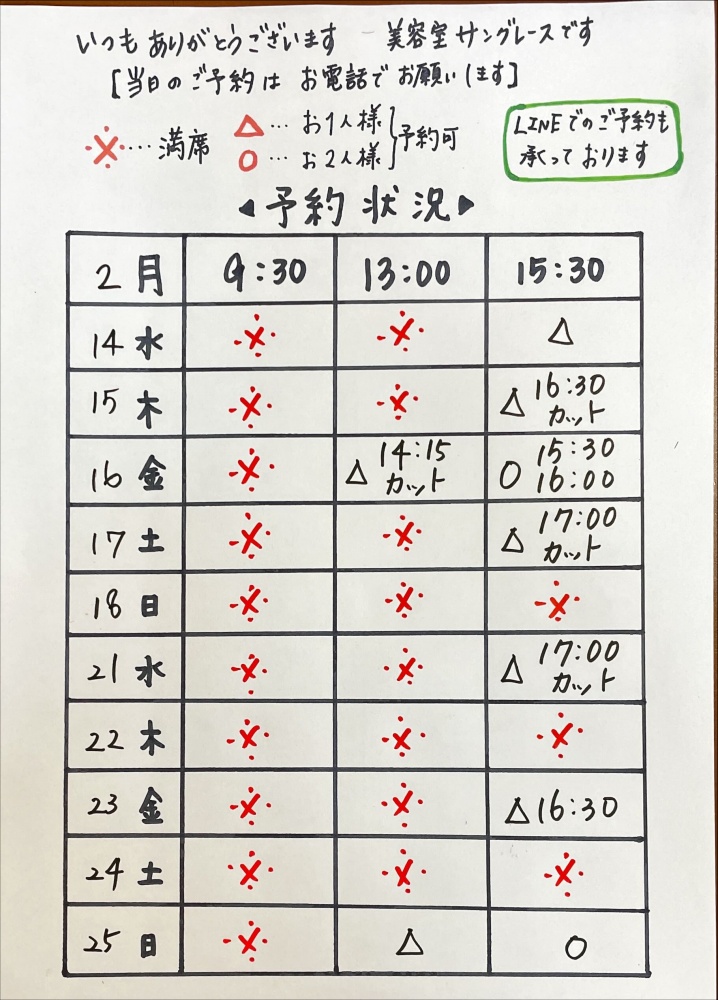 いつもありがとうございます 美容室サングレースです
[当日のご予約は お電話でお願いします]
※…満席
△…お1人様
○…お2人様
予約可
LINEでのご予約も
承っております
◀予約状況▶
2月 9:30 13:00 15:30
14 水 ※ ※ △
15 木 ※ ※ △ 16:30 カット
16 金 ※ △ 14:15 カット ○ 15:30 16:00
17 土 ※ ※ △ 17:00 カット
18 日 ※ ※ ※
21 水 ※ ※ △ 17:00 カット
22 木 ※ ※ ※
23 金 ※ ※ △ 16:30
24 土 ※ ※ ※
25 日 ※ △ ○